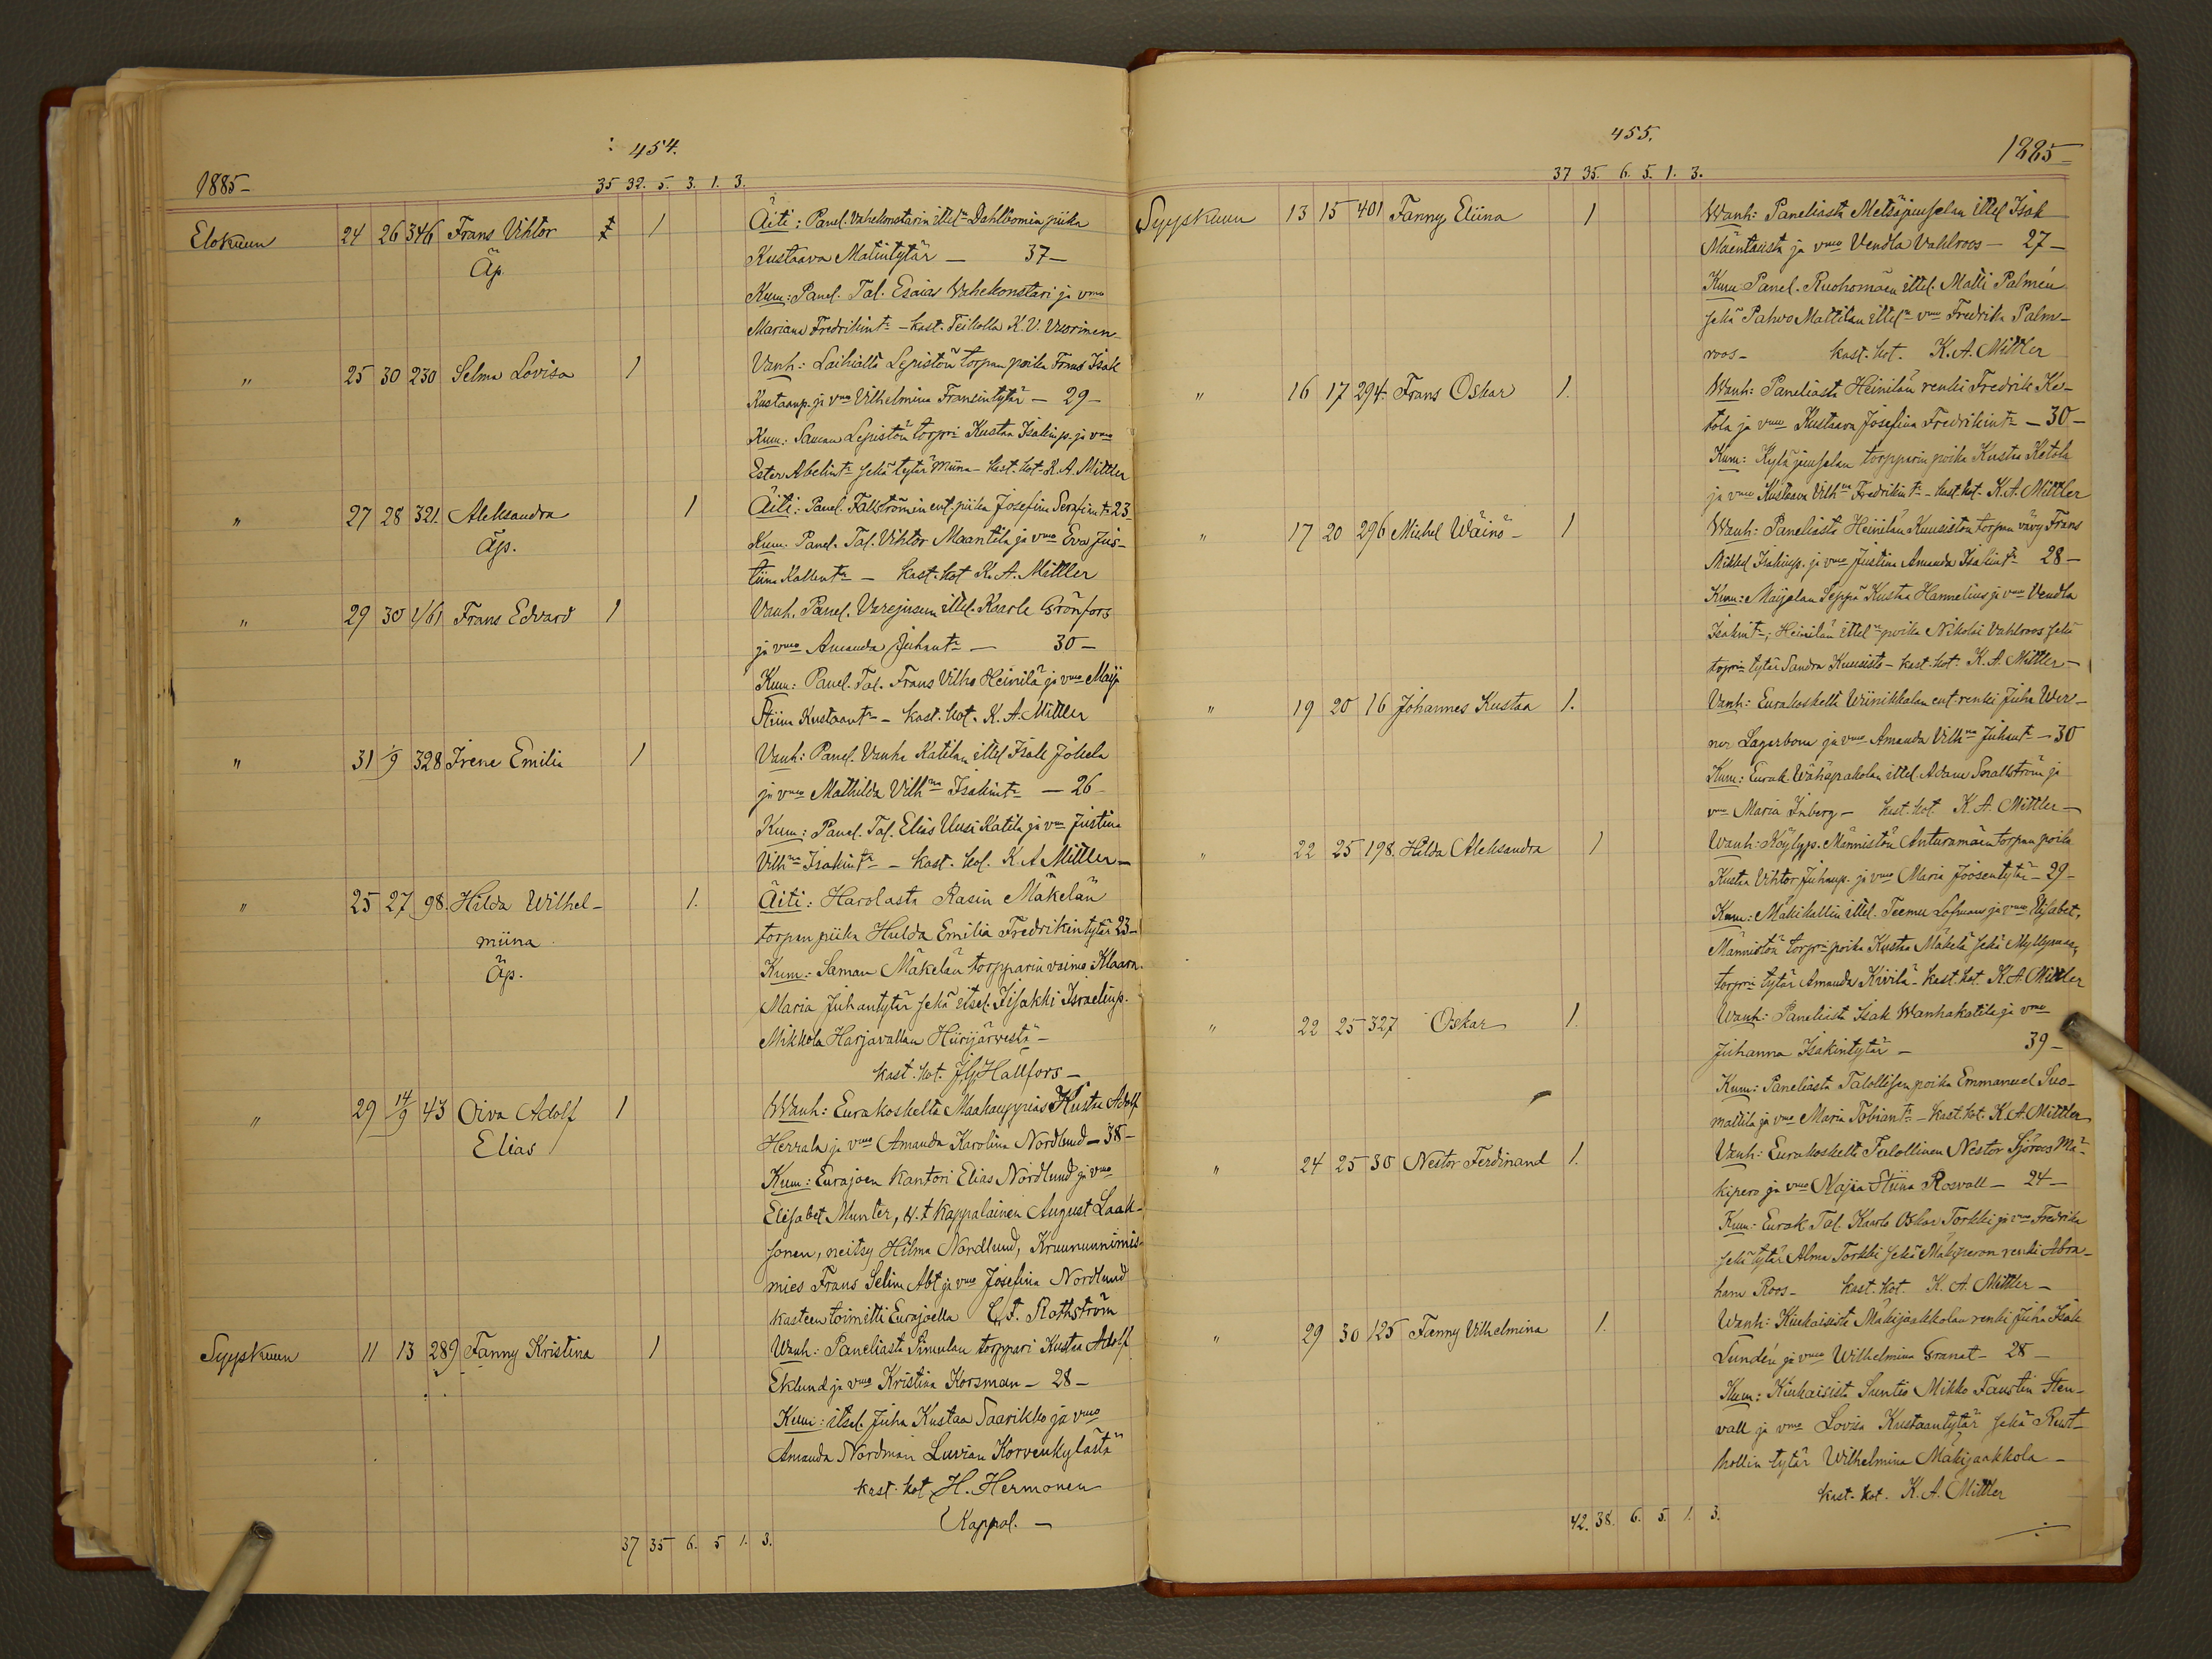 454.
1885-
35 32. 5. 3. 1. 3.
Elokuun 24 26 346 Frans Vihtor 1 Äiti: Panel. Vahekonstarin ittel:n Dahlbomin piika
Äp. Kustaava Matintytär — 37 —
Kum: Panel. Tal. Esaias Wahekonstari ja vmo
Mariana Fredrikint:r - kast. Teikolla K. V. Vuorinen
" 25 30 230 Selma Lovisa 1 Vanh: Laihialta Lepistön torpan poika Frans Isak
Kustaanp. ja vmo Vilhelmina Fransintytär — 29 —
Kum: Saman Lepistön torpri Kustaa Isakinp. ja vmo
Ester Abelint:r sekä tytär Miina - kast. kot. K. A. Mittler
" 27 28 321. Aleksandra 1 Äiti: Panel. Fallströmin ent. piika Josefina Serafint:r 23
Äp. Kum. Panel. Tal. Vihtor Maantila ja vmo Eva Jus-
tiina Kallent:r — kast. kot K. A. Mittler
" 29 30 Frans Edvard 1 Vanh. Panel. ittel. Kaarle Grönfors
ja vmo Amanda Juhant:r — 30 —
Kum: Panel. Tal. Frans Vilho Heinilä ja vmo Maija
Stiina Kustaant:r - kast. kot. K. A. Mittler
" 31 1/9 328 Irene Emilia 1 Vanh: Panel. Vanha Katilan ittel Isak Jokela
ja vmo Mathilda Vilh:na Isakint:r — 26 -
Kum: Panel. Tal. Elias Uusi Katila ja vmo Justina
Vilh:na Isakint:r — kast. kot. K. A Mittler —
" 25 27 98. Hilda Wilhel- 1. Äiti: Harolasta Rasin Mäkelän
miina torpan piika Hulda Emilia Fredrikintytär 23 —
Äp. Kum: Saman Mäkelän torpparin vaimo Klaara
Maria Juhantytär sekä itsel. Iisakki Israelinp.
Mikkola Harjavallan Hiirijärvestä -
kast. kot. J. G. Hällfors —
" 29 14/9 43 Oiva Adolf 1 Wanh: Eurakoskelta Maakauppias Kusta Adolf
Elias Herrala ja vmo Amanda Karolina Nordlund — 38 —
Kum: Eurajoen Kantori Elias Nordlund ja vmo
Elisabet Munter, v. t kappalainen August Laak-
sonen, neitsy Hilma Nordlund, Kruununnimis-
mies Frans Selim Abt ja vmo Josefina Nordlund
kasteen toimitti Eurajoella C. F. Rothström
Syyskuun 11 13 289 Fanny Kristina 1 Wanh: Paneliasta Simulan torppari Kustaa Adolf
Eklund ja vmo Kristina Korsman — 28 —
Kum: itsel. Juha Kustaa Saarikko ja vmo
Amanda Nordman Luvian Korvenkylästä
kast. kot. H. Hermonen
Kappal. —
37 35 6. 5 1. 3.
455.
1885-
37 35. 6. 5. 1. 3.
Syyskuun 13 15 401 Fanny Eliina 1 Wanh: Paneliasta Metsäjuuselan ittel Isak
Mäentausta ja vmo Vendla Vahlroos — 27 —
Kum Panel. Ruohomäen ittel. Matti Palmén
sekä Pahvo Mattilan ittel:n vmo Fredrika Palm-
roos — kast. kot. K. A. Mittler
" 16 17 294. Frans Oskar 1. Wanh: Paneliasta Heinilän renki Fredrik Ke-
tola ja vmo Kustaava Josefina Fredrikint:r — 30 —
Kum: Kyläjuuselan torpparin poika Kustaa Ketola
ja vmo Kustaava Vilh:na Fredrikint:r - kast. kot. K. A. Mittler
" 17 20 296 Mickel Wäinö - 1 Wanh: Paneliasta Heinilän Kuusiston torpan vävy Frans
Mikkel Isakinp. ja vmo Justina Amanda Isakint:r 28 —
Kum: Maijalan Seppä Kustaa Hannelius ja vmo Vendla
Isakint:r; Heinilän ittel:n poika Nikolai Vahlroos sekä
torpri:n tytär Sandra Kuusisto - kast. kot. K. A. Mittler —
" 19 20 16 Johannes Kustaa 1. Vanh: Eurakoskelta Wiinikkalan ent. renki Juha Wer-
ner Lagerbom ja vmo Amanda Vilh:na Juhant:r — 30
Kum: Eurak. Wähäpakolan ittel Adam Smallström ja
vmo Maria Inberg — kast. kot. K. A. Mittler —
" 22 25 198. Hilda Aleksandra 1 Wanh: Köylyp. Männistön Anturamäen torpan poika
Kustaa Vihtor Juhanp. ja vmo Maria Joosentytär — 29 -
Kum: Mäkikallin ittel. Teemu Lofman ja vmo Elisabet,
Männistön torpri:n poika Kustaa Mäkelä sekä Myllymaan
torpri:n tytär Amanda Kivilä - kast. kot. K. A. Mittler
" 22 25 327 Oskar 1. Wanh: Paneliasta Isak Wanhakatila ja vmo
Juhanna Isakintytär — 39 —
Kum: Paneliasta Talollisen poika Emmanuel Suo-
mattila ja vmo Maria Tobiant:r - kast. kot. K. A. Mittler
" 24 25 30 Nestor Ferdinand 1. Vanh: Eurakoskelta Talollinen Nestor Sjöroos Mä-
kipero ja vmo Maija Stiina Rosvall — 24 —
Kum: Eurak Tal. Kaarlo Oskar Torkki ja vmo Fredrika
sekä tytär Alma Torkki sekä Mäkiperon renki Abra-
ham Roos — kast. kot. K. A. Mittler —
" 29 30 125 Fanny Vilhelmina 1. Wanh: Kiukaisista Mäkijaakkolan renki Juha Isak
Lundén ja vmo Wilhelmina Granat — 28 —
Kum: Kiukaisista Suntio Mikko Faustin Sten-
vall ja vmo Lovisa Kustaantytär sekä Rust-
hollin tytär Wilhelmina Mäkijaakkola —
kast. kot. K. A. Mittler
42. 38. 6. 5. 1. 3.